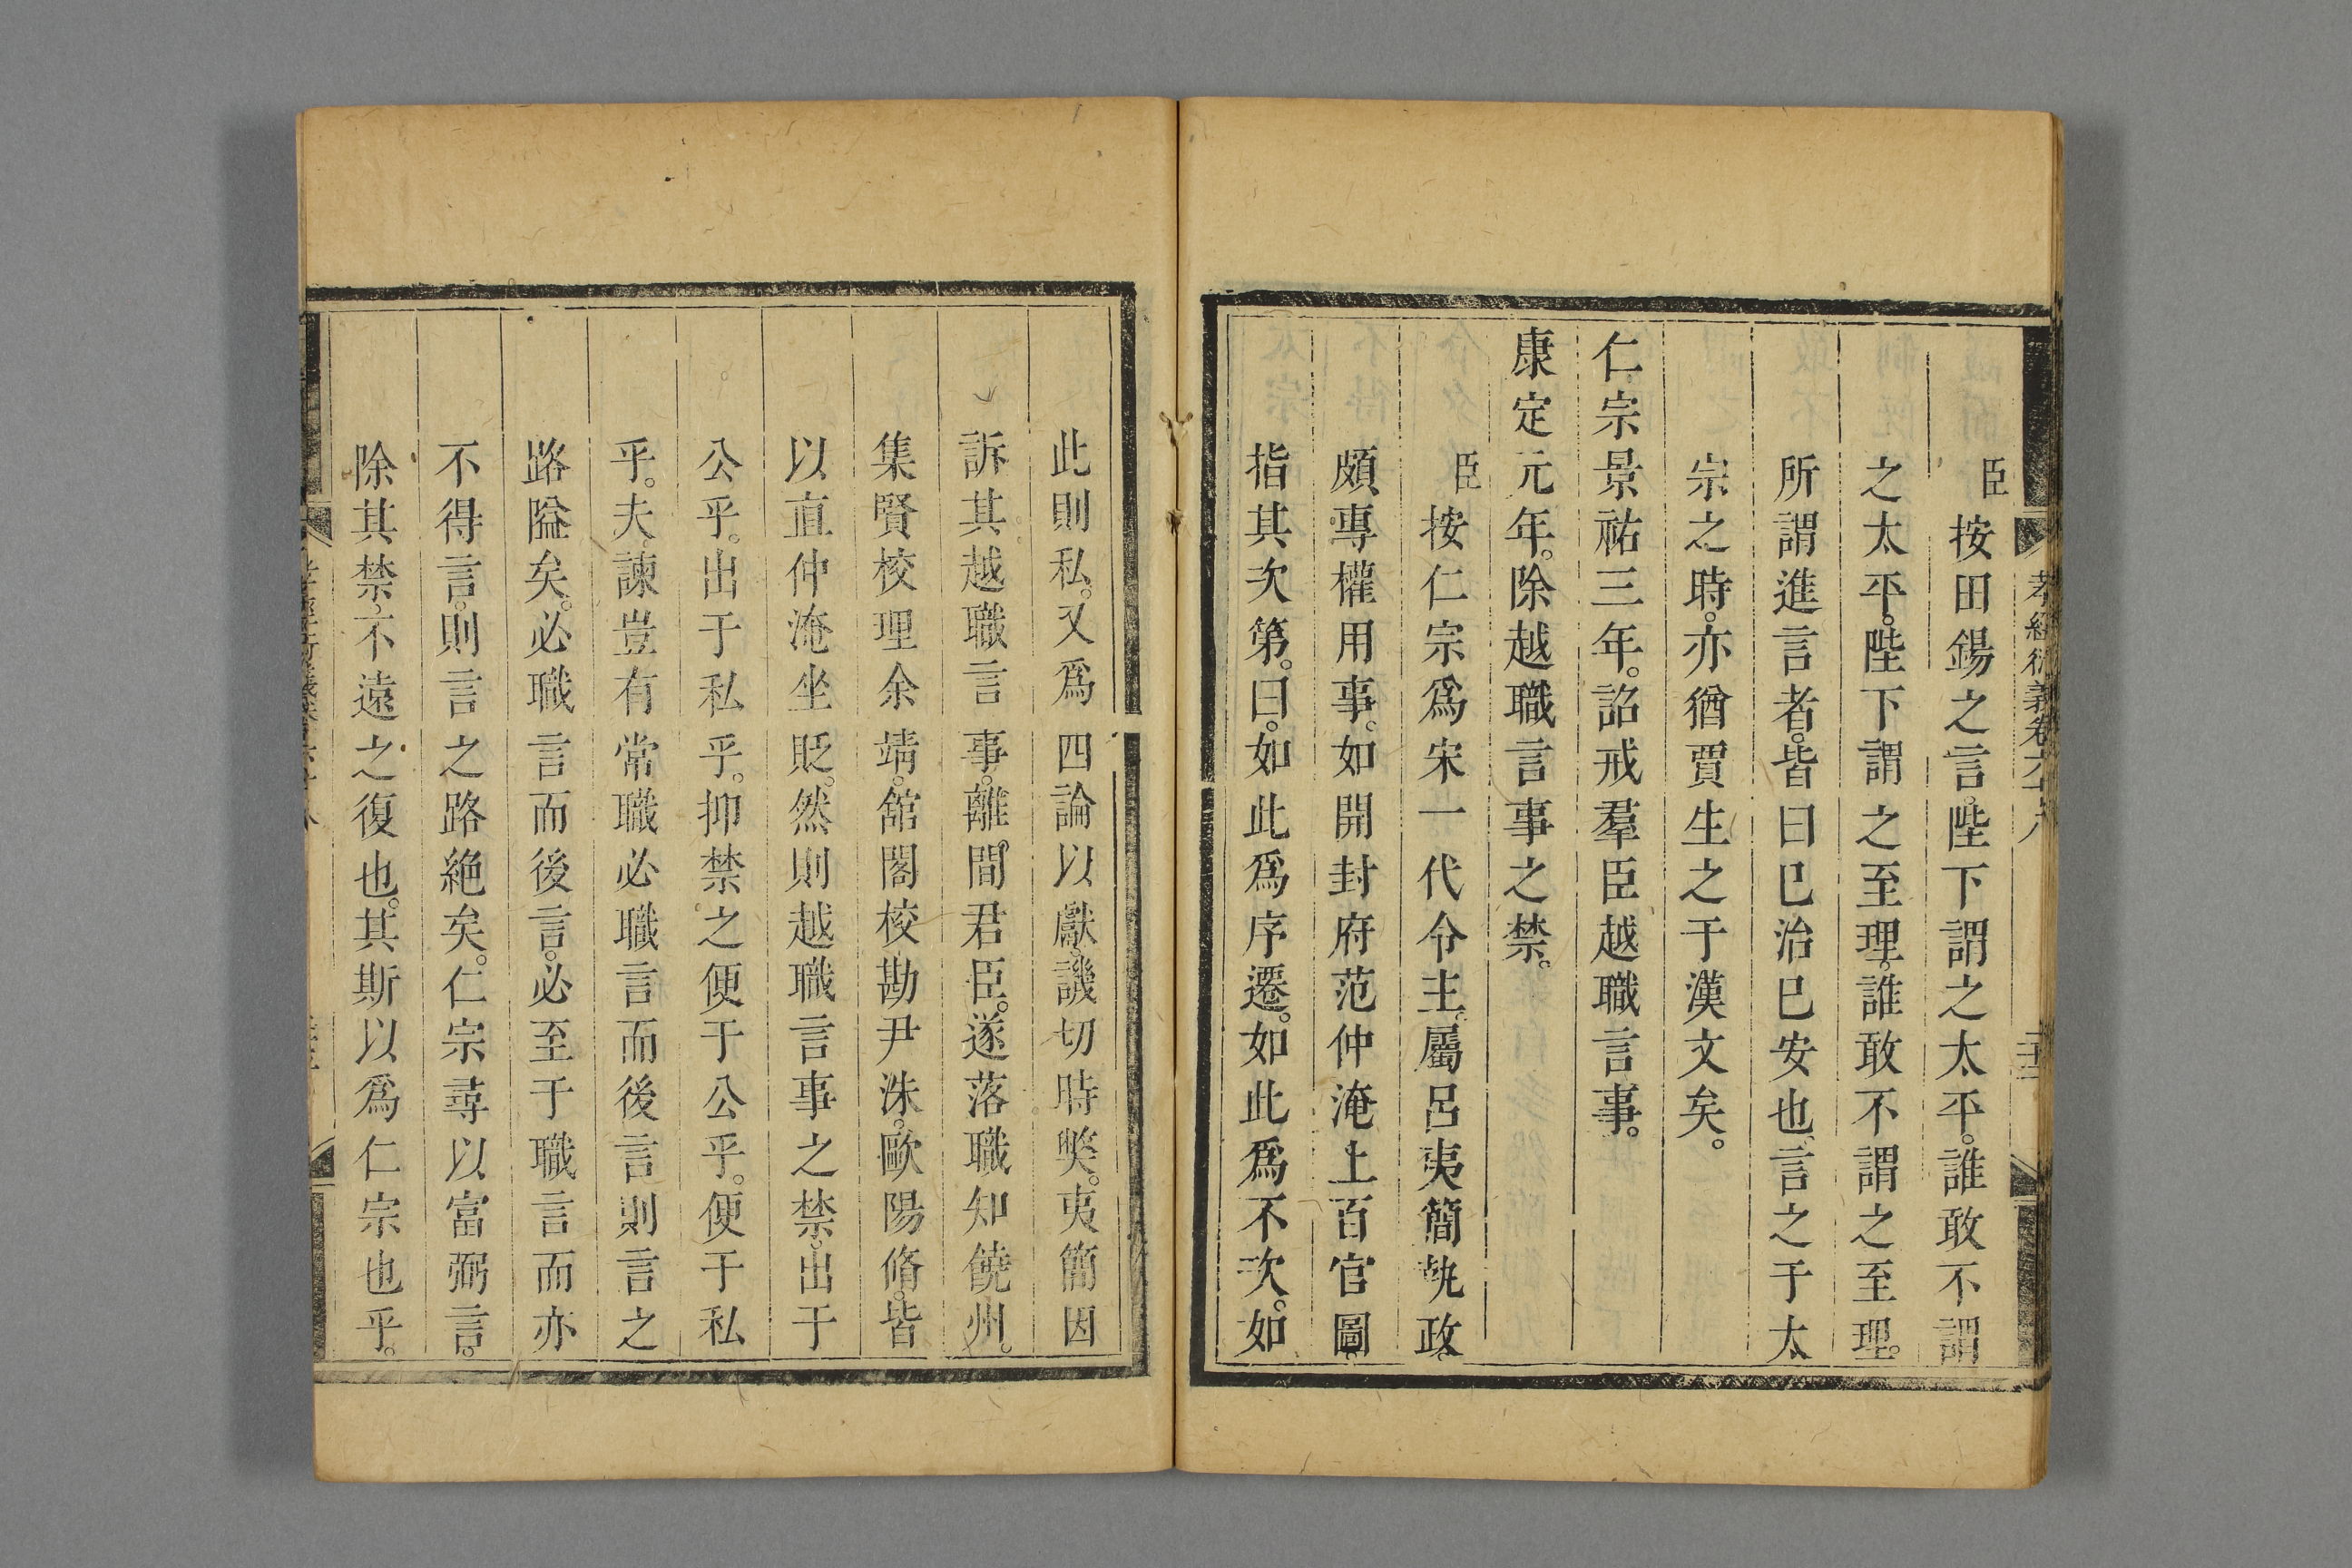 孝經衍義卷六十八
臣按田錫之言。陛下謂之太平。誰敢不謂
之太平。陛下謂之至理。誰敢不謂之至理。
所謂進言者。皆曰已治已安也。言之于太
宗之時。亦猶賈生之于漢文矣。
仁宗景祐三年。詔戒羣臣越職言事。
康定元年。除越職言事之禁。
臣按仁宗爲宋一代令主。屬呂夷簡執政。
頗專權用事。如開封府范仲淹上百官圖。
指其次第。曰。如此爲序遷。如此爲不次。如
此則私。又爲四論以獻。譏切時獘。夷簡因
訴其越職言事。離間君臣。遂落職知饒州。
集賢校理余靖。舘閣校勘尹洙。歐陽脩。皆
以直仲淹坐貶。然則越職言事之禁。出于
公乎。出于私乎。抑禁之便于公乎。便于私
乎。夫諫豈有常職必職言而後言則言之
路隘矣。必職言而後言。必至于職言而亦
不得言。則言之路絶矣。仁宗尋以富弼言。
除其禁。不遠之復也。其斯以爲仁宗也乎。